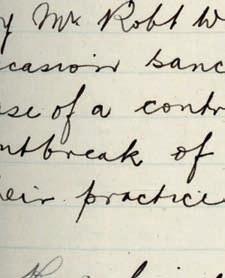 y Mr Robt W
ccasion sanc
se of a contr
ntbreak of
heir practice